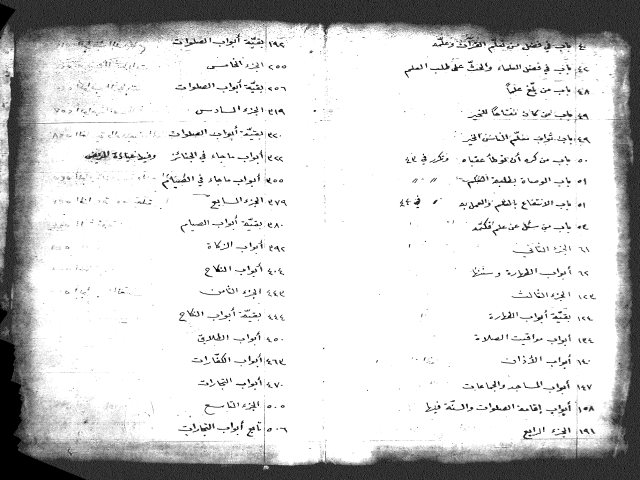 ٤٠ باب في فضل من تعلم القرآن وعلّمه
٤٢ باب في فضل العلماء والحثّ على طلب العلم
٤٨ باب من بلّغ علماً
٤٩ باب من كان مفتاحا للخير
٤٩ باب ثواب معلّم الناس الخير
٥٠ باب من كره أن يوطأ عقباه وتكرر في ٤٣
٥١ باب الوصاة بطلبة العلم
٥١ باب الانتفاع بالعلم والعمل به في ٤٤
٥٣ باب من سئل عن علم فكتمه
٦١ الجزء الثاني
٦٢ أبواب الطهارة وسننها
١٢٣ الجزء الثالث
١٢٤ بقيّة أبواب الطهارة
١٣٤ أبواب مواقيت الصلاة
١٤٠ أبواب الأذان
١٤٧ أبواب المساجد والجماعات
١٥٨ أبواب إقامة الصلوات والسنّة فيها
١٩١ الجزء الرابع
١٩٢ بقيّة أبواب الصلوات
٢٥٥ الجزء الخامس
٢٥٦ بقيّة أبواب الصلوات
٣١٩ الجزء السادس
٣٢٠ بقيّة أبواب الصلوات
٣٢٢ أبواب ماجاء في الجنائز وفيه عيادة المريض
٣٥٥ أبواب ماجاء في الصيام
٣٧٩ الجزء السابع
٣٨٠ بقيّة أبواب الصيام
٣٩٢ أبواب الزكاة
٤٠٤ أبواب النكاح
٤٤٣ الجزء الثامن
٤٤٤ بقيّة أبواب النكاح
٤٥٠ أبواب الطلاق
٤٦٣ أبواب الكفّارات
٤٧٠ أبواب التجارات
٥٠٥ الجزء التاسع
٥٠٦ تابع أبواب التجارات